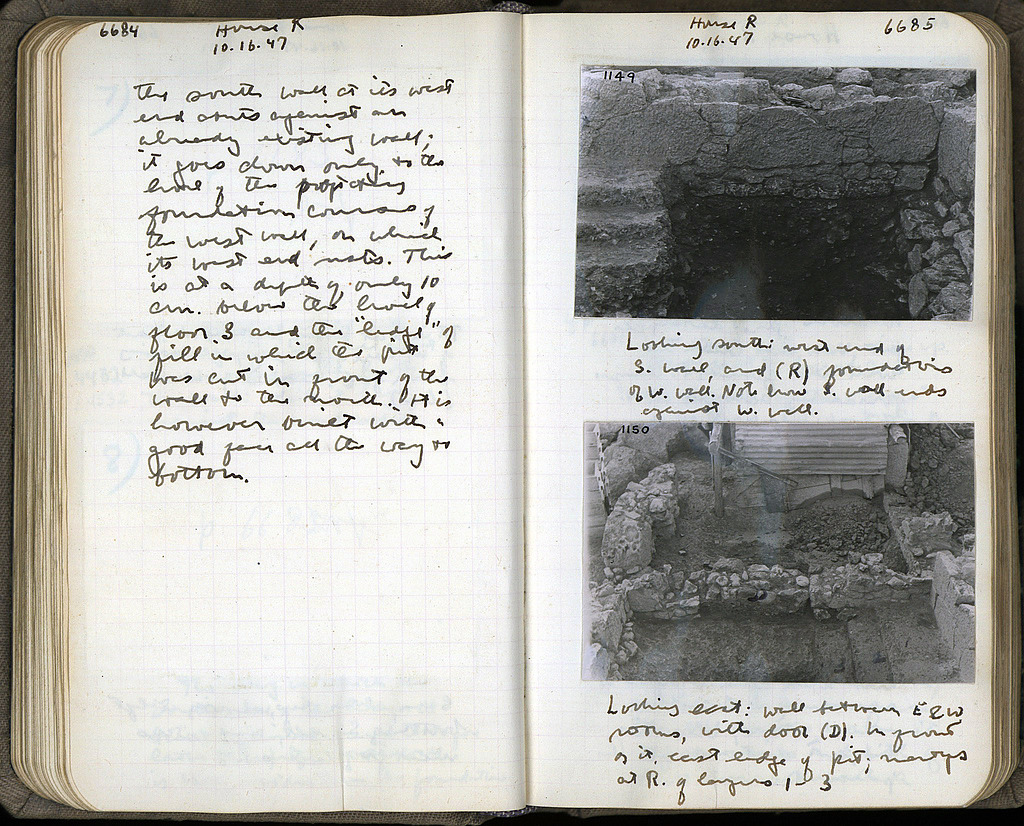 6684
House R
10.16.47
the south wall at its west
end abuts against an
already existing wall;
it goes down only to the
line of the projecting
foundation courses of
the west wall, on which
its west end rests. This
is at a depth of only 10
cm. below the level of
floor 3 and the "ledge" of
fill in which the pit
was cut in front of the
wall to the north. It is
however built with a
good face all the way to
bottom.
House R
10.16.47
6685
1149
Looking south: west end of
S. wall, and (R) foundations
of W. wall. Note how S. wall ends
against W. wall.
1150
Looking east: wall between E & W
rooms, with door (D). In front
of it, east edge of pit;
at R. of layers 1-3